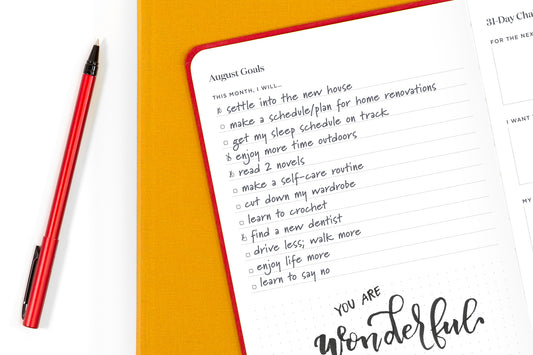 August Goals
THIS MONTH, I WILL...
settle into the new house
make a schedule/plan for home renovations
get my sleep schedule on track
enjoy more time outdoors
read 2 novels
make a self-care routine
cut down my wardrobe
learn to crochet
find a new dentist
drive less; walk more
enjoy life more
learn to say no
YOU ARE
wonderful
31-Day Cha
FOR THE NEX
I WANT
MY